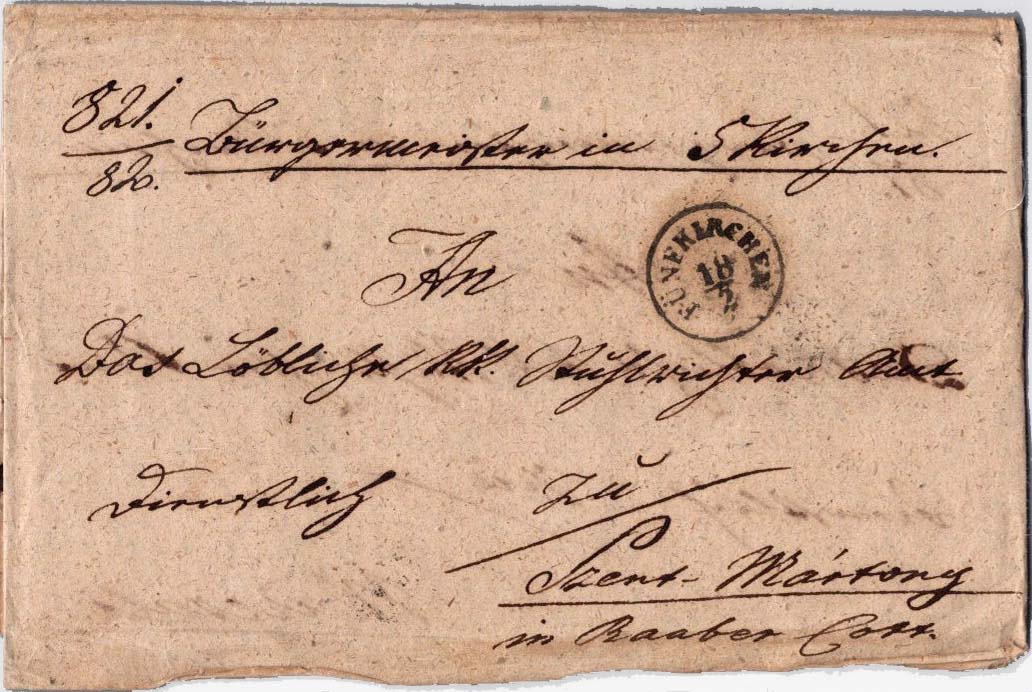 821.
82.
Bürgermeister in 5 Kirchen.
FÜNFKIRCHEN
18/5
An
Das Löbliche KK. Stuhlrichter Amt
Dienstlich zu
Szent-Mártony
in Raaber Com.